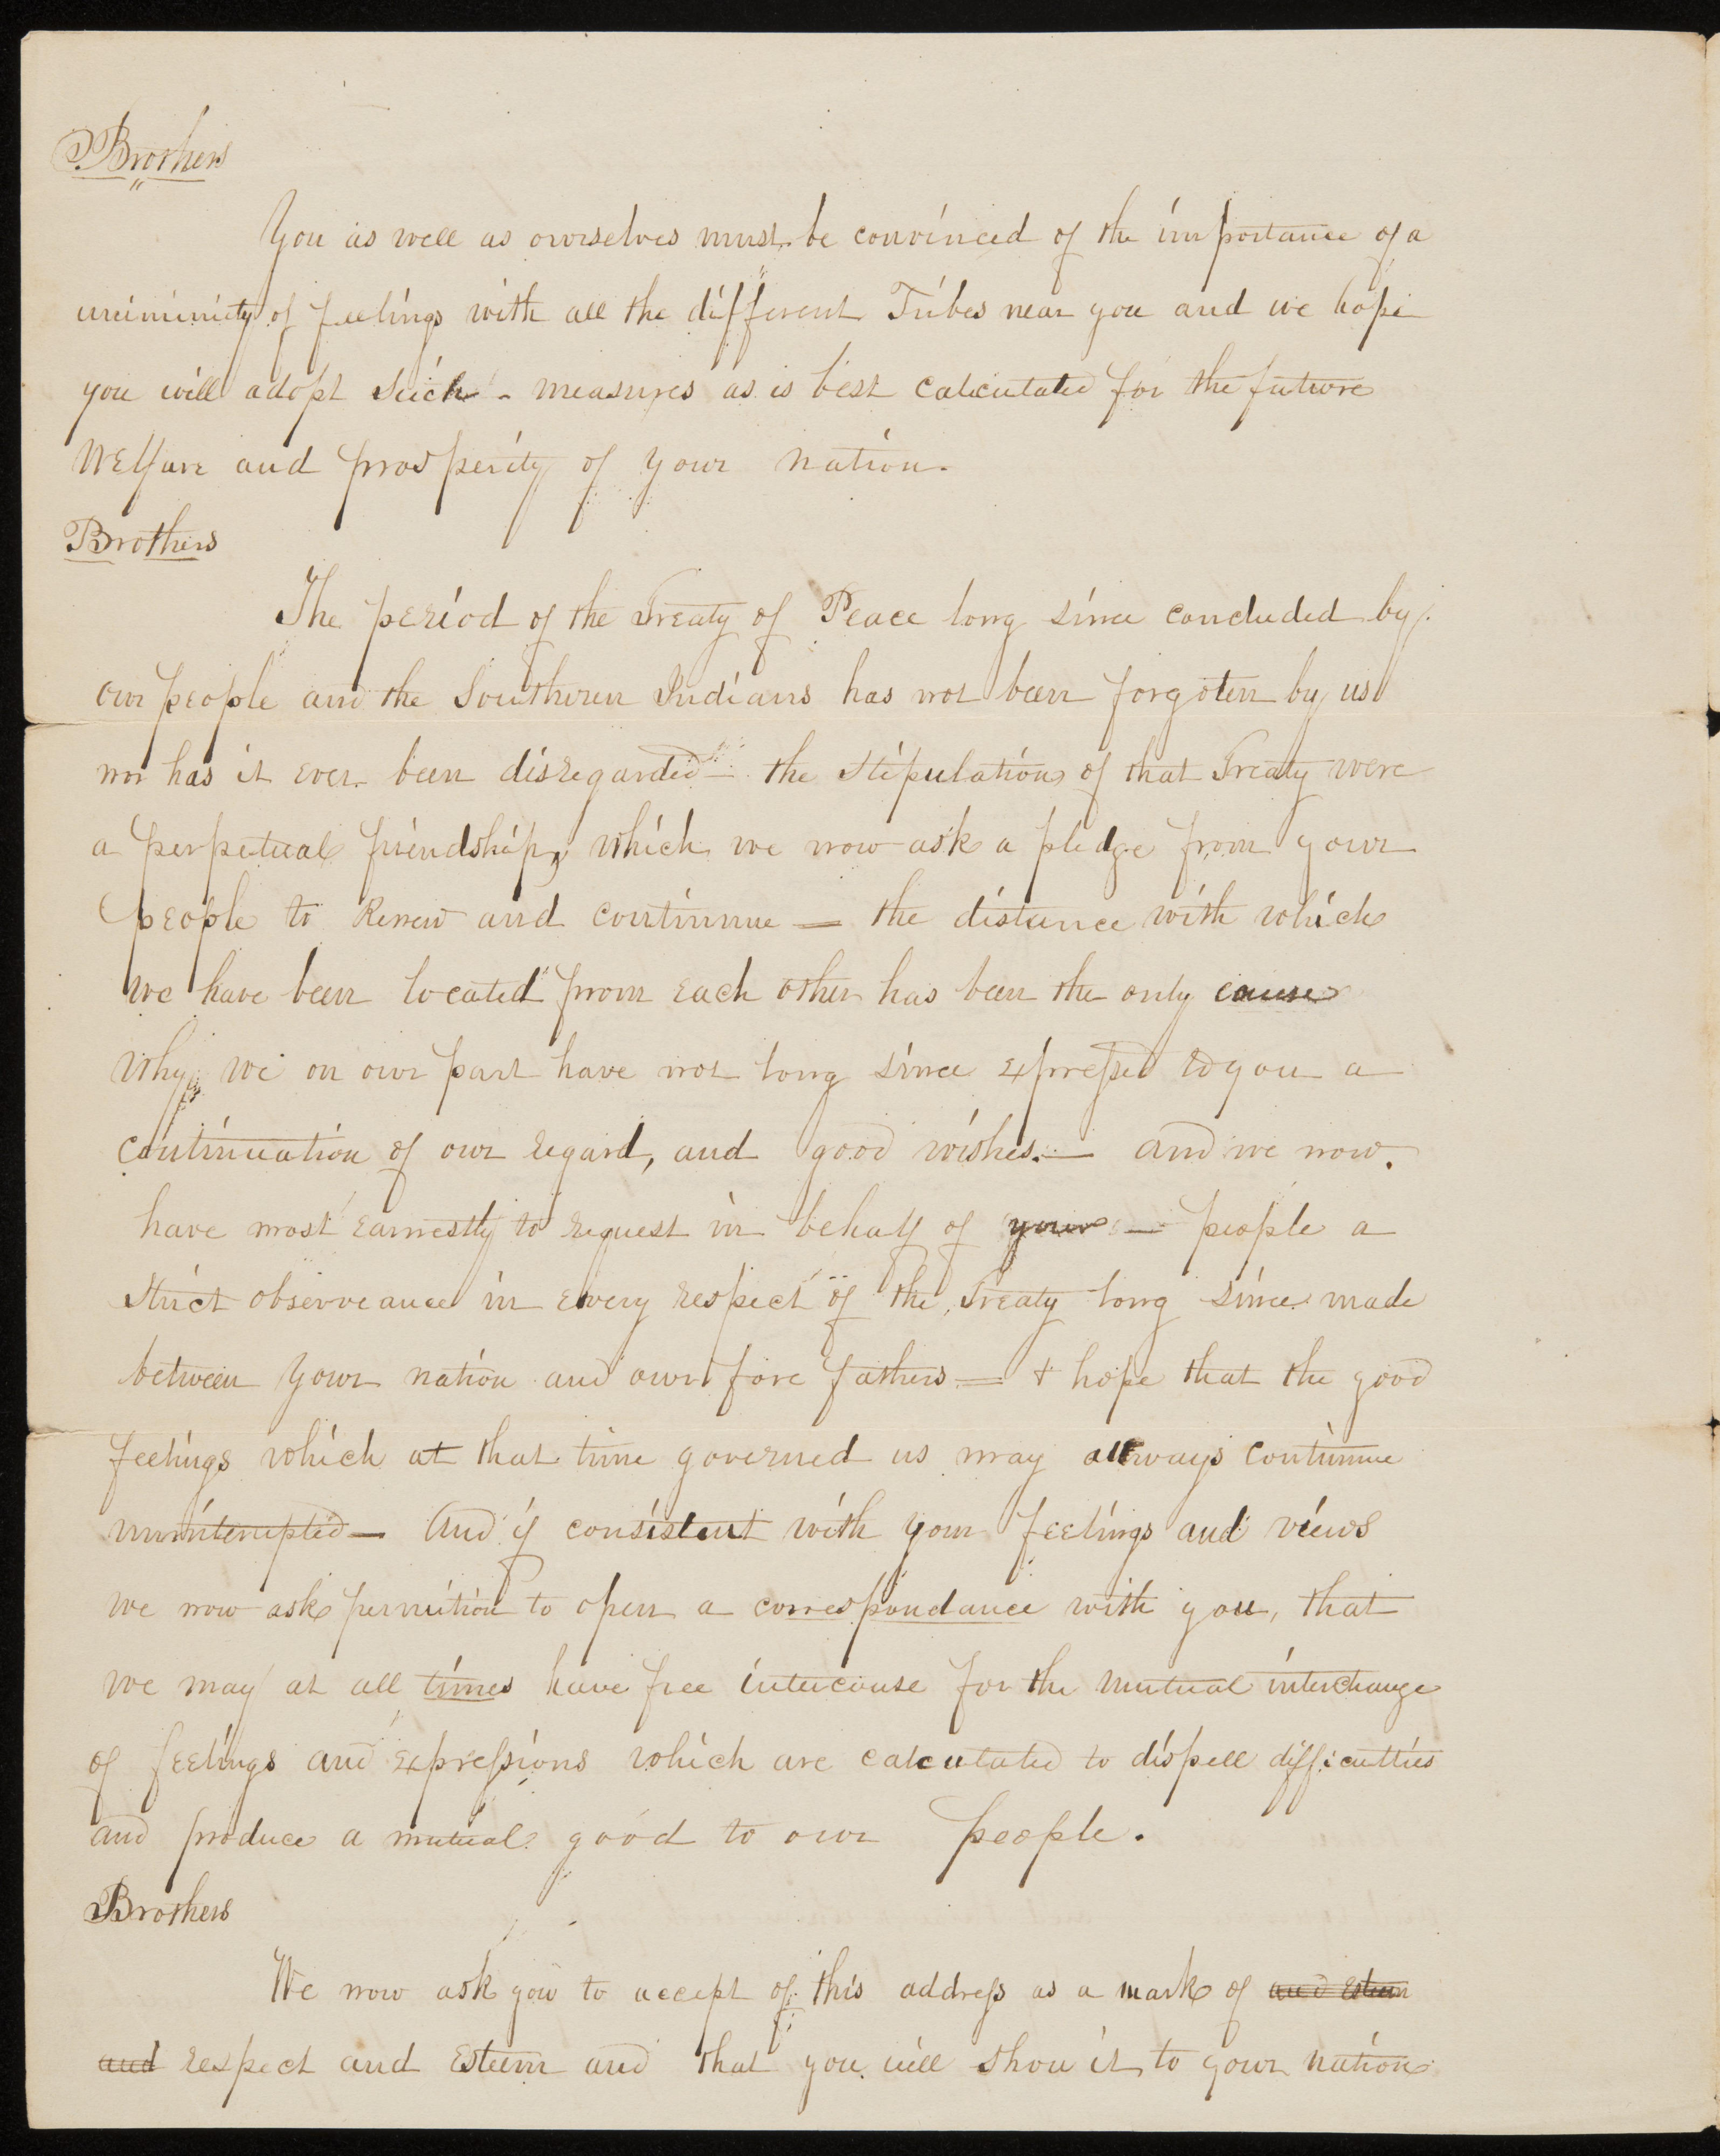 Brothers
You as well as ourselves must be convinced of the importance of a
uniminity of feelings with all the different Tribes near you and we hope
you will adopt such - measures as is best calculated for the future
Welfare and prosperity of your nation.
Brothers
The period of the Treaty of Peace long since concluded by
our people and the Southern Indians has not been forgoten by us
nor has it ever been disregarded — the stipulations of that Treaty were
a perpetual friendship, which we now ask a pledge from your
people to Renew and continue — the distance with which
we have been located from each other has been the only cause
why we on our part have not long since expressed to you a
continuation of our regard, and good wishes. — and we now
have most earnestly to request in behalf of your — people a
strict observeance in every respect of the Treaty long since made
between your nation and our fore fathers — + hope that the good
feelings which at that time governed us may allways continue
uninterupted — And if consistent with your feelings and views
we now ask permition to open a correspondance with you, that
we may at all times have free intercouse for the mutual interchange
of feelings and expressions which are calculated to dispell difficulties
and produce a mutual good to our people.
Brothers
We now ask you to accept of this address as a mark of and Esteem
and respect and Esteem and that you will show it to your nation